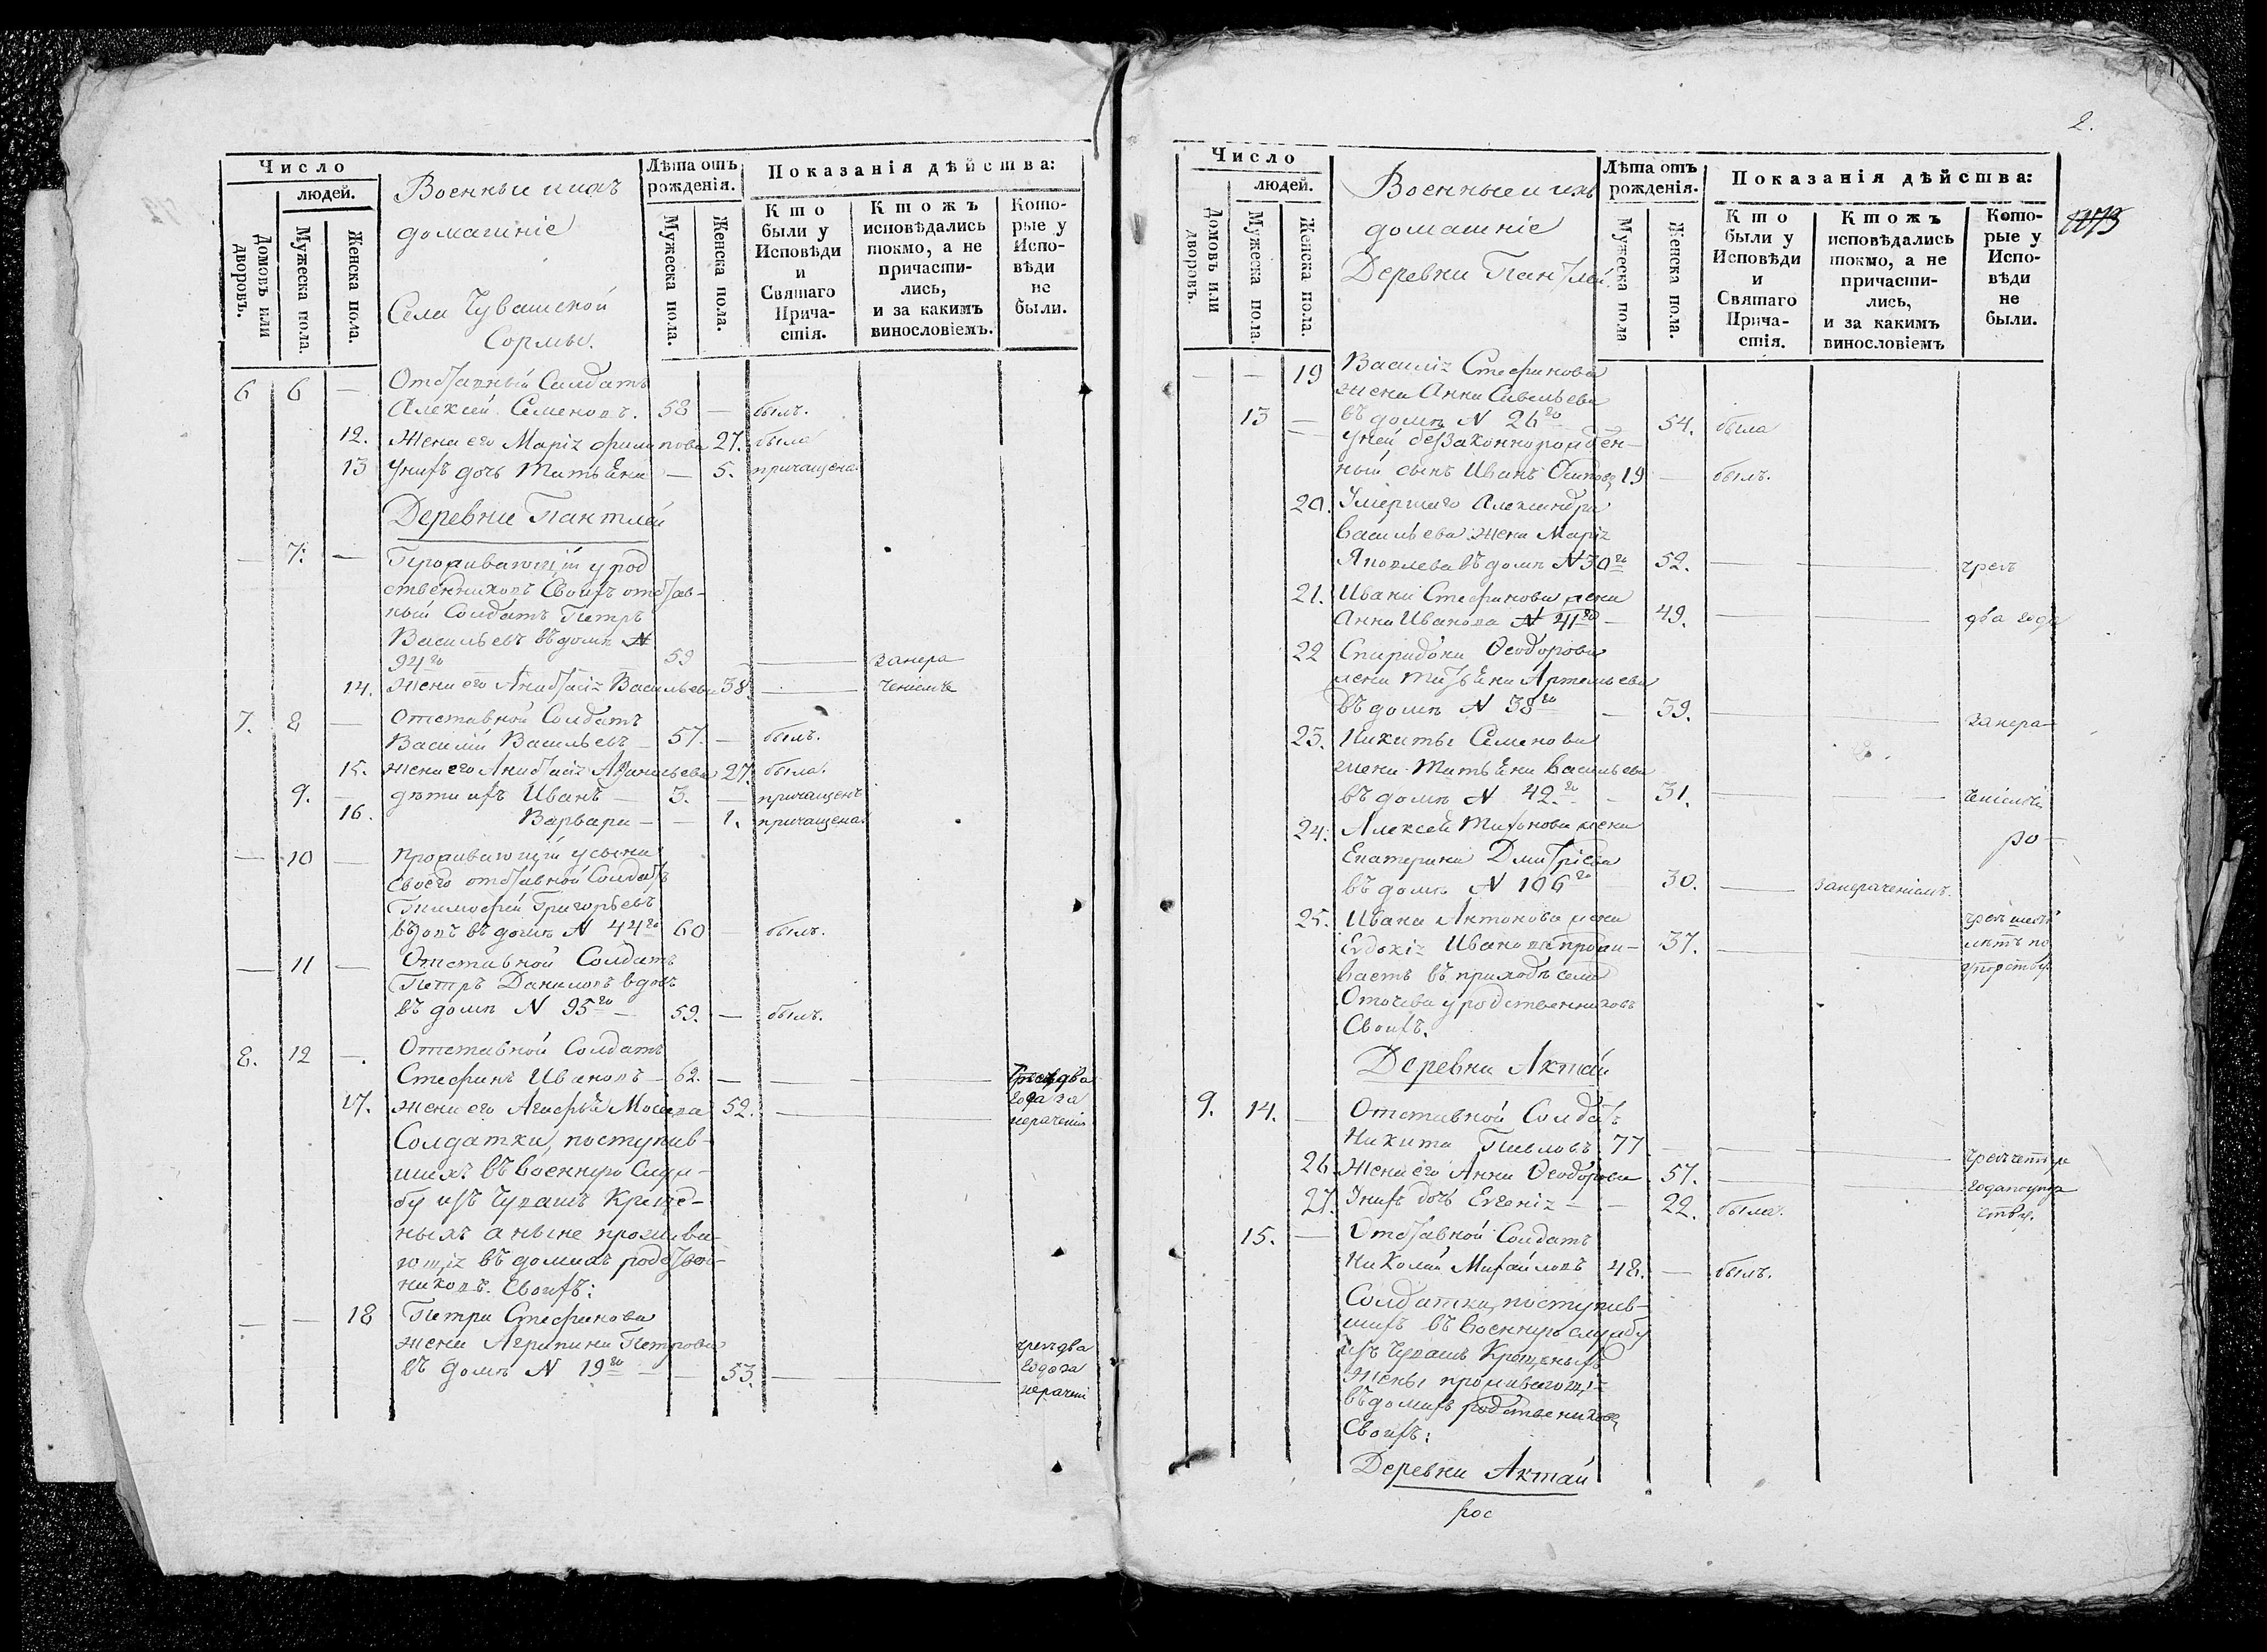 Число
людей.
Домовъ или дворовъ.
Мужеска пола.
Женска пола.
Военные и ихъ
домашніе
Села Чувашской
Сормы.
Лѣта отъ
рожденія.
Мужеска пола.
Женска пола.
Показанія дѣйства:
Кто
были у
Исповѣди
и
Святаго
Прича-
стія.
Ктожъ
исповѣдались
токмо, а не
причасти-
лись,
и за какимъ
винословіемъ.
Кото-
рые у
Испо-
вѣди
не
были.
6 6 — Отставный Салдатъ
Алексѣй Семеновъ. 58 — былъ.
12. Жена его Марія Филипова 27. была
13 У нихъ дочь Татьяна — 5. причащена.
Деревни Пантлей
— 7. — Проживающій у род
ственниковъ Своихъ отстав-
ный Солдатъ Петръ
Васильевъ въ домѣ №
94го 59 — занера
14. Жена его Анастасія Васильева 38. ченіемъ
7. 8 — Отставной Солдатъ
Василій Васильевъ — 57. — былъ.
15. жена его Анастасія Аѳанасьева 27. была.
9. — дѣти ихъ Иванъ — 3. — причащенъ
16. Варвара — — 1. причащена.
— 10 — Проживающій у сына
своего отставной Солдатъ
Тимофей Григорьевъ
вдовъ въ домѣ № 44го 60 — былъ.
— 11 — Отставной Солдатъ
Петръ Даниловъ вдовъ
въ домѣ № 95го — 59. — былъ.
8. 12 —. Отставной Солдатъ
Стефанъ Ивановъ — 62. — — — два
17. жена его Агафья Мосеева 52. — года за
нерачені
Солдатки, поступив-
шихъ въ военную Служ-
бу изъ Чувашъ Креще-
ныхъ а ныне прожива-
ющія въ домахъ родствен-
никовъ Своихъ:
— — 18 Петра Стефанова
жена Агрипина Петрова
въ домѣ № 19го — — 53. — чрезъ два
года за
нерачені
2.
1073
Число
людей.
Домовъ или дворовъ.
Мужеска пола.
Женска пола.
Военные и ихъ
домашніе
Деревни Пантлей
Лѣта отъ
рожденія.
Мужеска пола
Женска пола.
Показанія дѣйства:
Кто
были у
Исповѣди
и
Святаго
Прича-
стія.
Ктожъ
исповѣдались
токмо, а не
причасти-
лись,
и за какимъ
винословіемъ
Кото-
рые у
Испо-
вѣди
не
были.
— — 19 Василія Стефанова
жена Анна Савельева
въ домѣ № 26го 54. была
13 — У ней беззаконнорожден-
ный сынъ Иванъ Осиповъ 19 — былъ.
20. Умершаго Александра
Васильева жена Марія
Яковлева въ домѣ № 30го 52. — — чрезъ
21. Ивана Стефанова жена
Анна Иванова № 41го — 49. — — два года
22 Спиридона Ѳеодорова
жена Татьяна Артемьева
въ домѣ № 38го — 39. — — за нера-
23. Никиты Семенова
жена Татьяна Васильева
въ домѣ № 42.го — 31. — — ченіемъ
24. Алексѣя Тихонова жена
Екатерина Дмитріева
въ домѣ № 106го 30. — занераченіемъ.
25. Ивана Антонова жена
Евдокія Иванова прожи- 37. — чрезъ шесть
ваетъ въ приходѣ села лѣтъ по
Оточева у родственниковъ упорству
Своихъ.
Деревни Актай
9. 14. — Отставной Солдатъ
Никита Павловъ 77 — — чрезъ четыре
26 Жена его Анна Ѳеодорова 57. — года по упор
27. У нихъ дочь Евгенія — — 22. была. ству.
15. — Отставной Солдатъ
Николай Михайловъ 48. — былъ.
Солдатки, поступив-
шихъ въ военную службу
изъ Чувашъ Крещеныхъ
жены проживающія
въ домахъ родствениковъ
Своихъ:
Деревни Актай